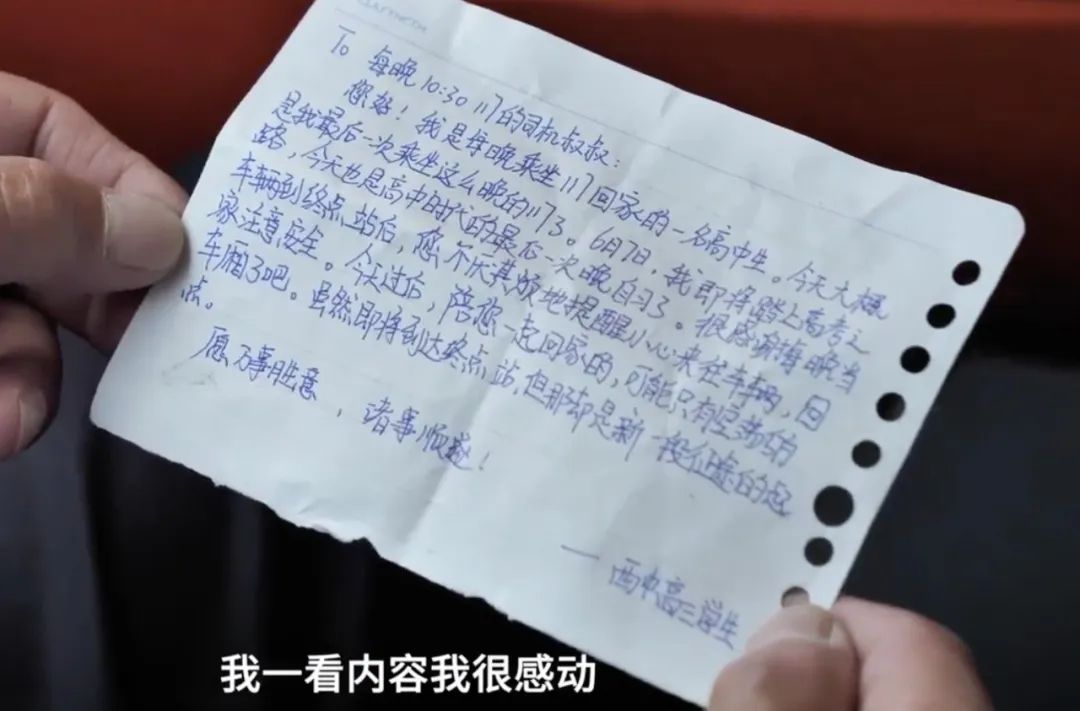 To 每晚10:30 117的司机叔叔:
您好！我是每晚乘坐117回家的一名高中生。今天大概
是我最后一次乘坐这么晚的117了。6月7日，我即将踏上高考之
路，今天也是高中时代的最后一次晚自习了。很感谢每晚当
车辆到终点站后，您不厌其烦地提醒小心来往车辆，回
家注意安全。今天过后，陪您一起回家的，可能只有空荡荡的
车厢了吧。虽然即将到达终点站，但那却是新一段征途的起
点。
愿万事胜意，诸事顺遂！
——西中高三学生
我一看内容我很感动